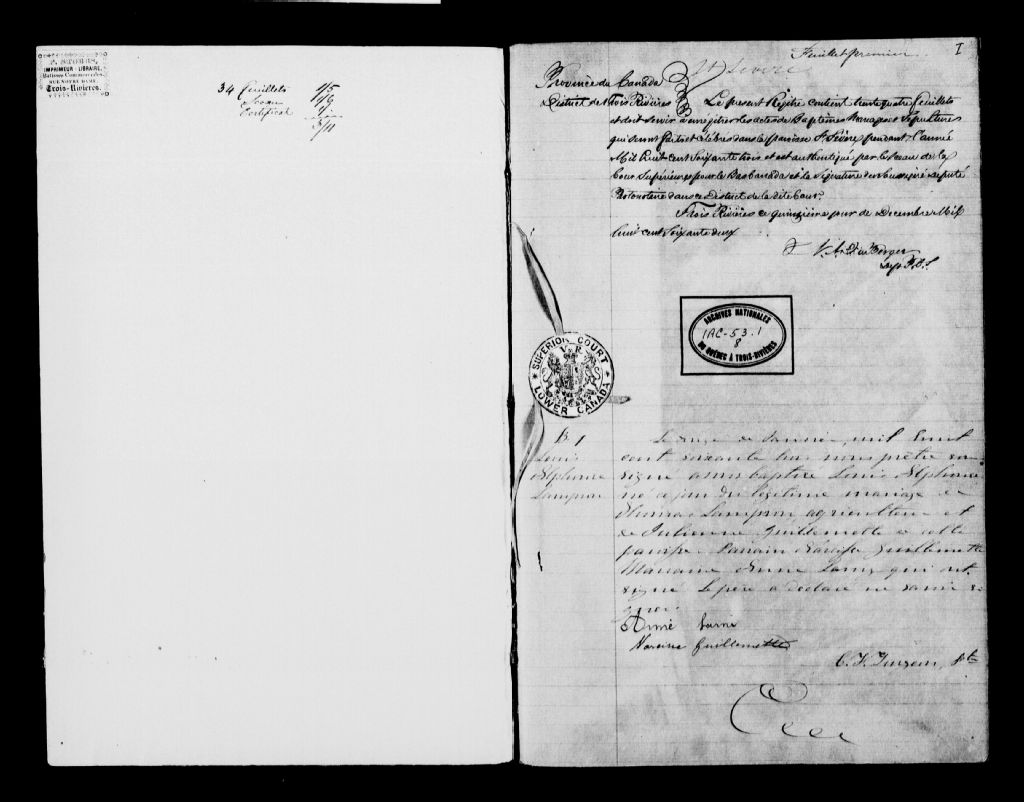 IMPRIMEUR - LIBRAIRE,
RUE NOTRE DAME,
Trois-Rivières.
34 feuillets 1/5
Sceau 1/9
Certificat
3/11
Feuillet premier I
St Sévère
Province du Canada
District de Trois Rivières Le present Régitre contient trente quatre feuillets
et doit servir à enregistrer les actes de Baptêmes Mariages et Sépultures
qui seront faits et célébrés dans la paroisse St. Sévère pendant l'année
Mil Huit cent Soixante trois et est authentiqué par le sceau de la
Cour Supérieure pour le Bas Canada et la Signature du Soussigné député
Protonotaire dans ce District de la dite Cour.
Trois Rivières ce quinzième jour de Decembre Mil
huit cent Soixante deux
SUPERIOR COURT
V R
LOWER CANADA
ARCHIVES NATIONALES
IAC-53.1
8
DU QUÉBEC À TROIS-RIVIÈRES
B 1
Louis
Alphonse
Lampron
Le onze de Janvier mil huit
cent soixante trois nous prêtre sous
signé avons baptisé Louis Alphonse
né ce jour du légitime mariage de
Thomas Lampron agriculteur et
de Julienne Guillemette de cette
paroisse. Parrain Narcisse Guillemette
Marraine Anne Lamy qui ont
signé. Le père a déclaré ne savoir si
gner.
Narcisse Guillemette